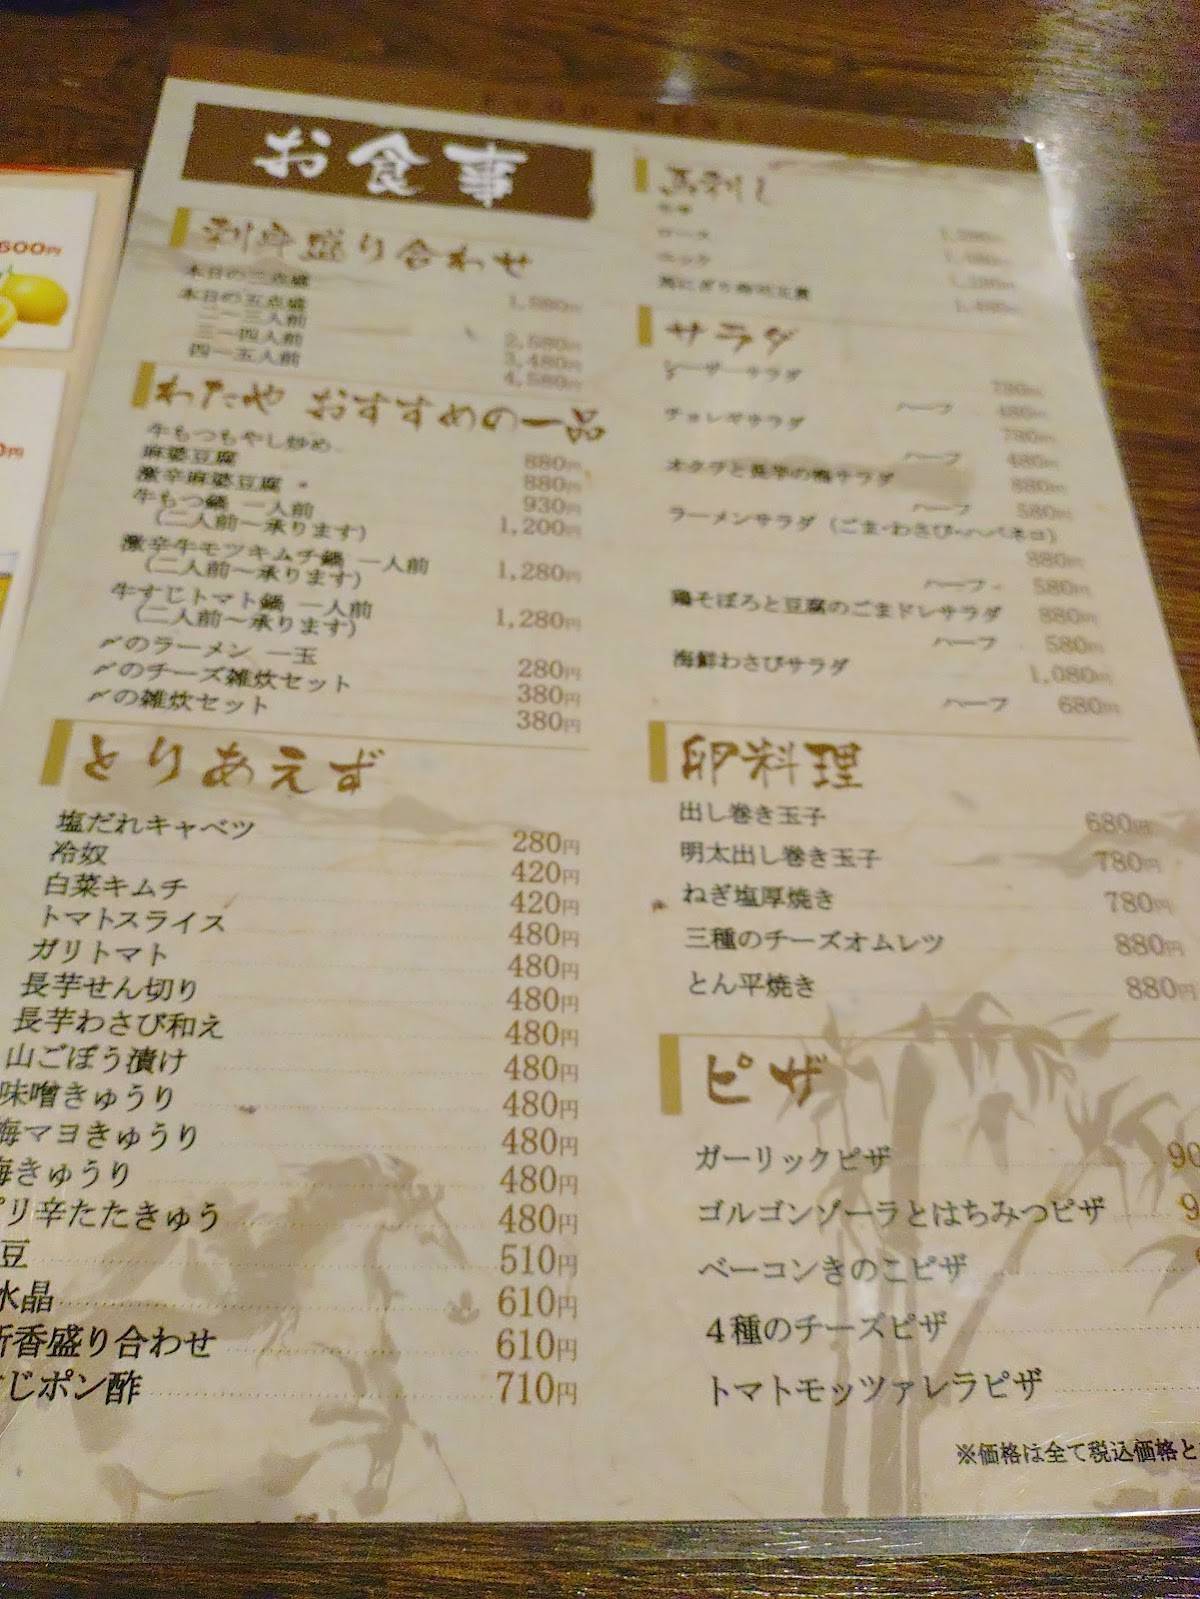 600円
FOOD MENU
お食事
刺身盛り合わせ
本日の三点盛 1,580円
本日の五点盛
二～三人前 2,580円
三～四人前 3,480円
四～五人前 4,580円
わたや おすすめの一品
牛もつもやし炒め 880円
麻婆豆腐 880円
激辛麻婆豆腐 930円
牛もつ鍋 一人前 1,200円
（二人前～承ります）
激辛牛モツキムチ鍋 一人前 1,280円
（二人前～承ります）
牛すじトマト鍋 一人前 1,280円
（二人前～承ります）
〆のラーメン 一玉 280円
〆のチーズ雑炊セット 380円
〆の雑炊セット 380円
とりあえず
塩だれキャベツ 280円
冷奴 420円
白菜キムチ 420円
トマトスライス 480円
ガリトマト 480円
長芋せん切り 480円
長芋わさび和え 480円
山ごぼう漬け 480円
味噌きゅうり 480円
梅マヨきゅうり 480円
梅きゅうり 480円
ピリ辛たたきゅう 480円
豆 510円
水晶 610円
新香盛り合わせ 610円
じポン酢 710円
馬刺し
ロース
馬にぎり寿司五貫
サラダ
シーザーサラダ 780円
ハーフ 480円
チョレギサラダ 780円
ハーフ 480円
オクラと長芋の梅サラダ 880円
ハーフ 580円
ラーメンサラダ（ごま・わさび・ハバネロ）
880円
ハーフ 580円
鶏そぼろと豆腐のごまドレサラダ 880円
ハーフ 580円
海鮮わさびサラダ 1,080円
ハーフ 680円
卵料理
出し巻き玉子 680円
明太出し巻き玉子 780円
ねぎ塩厚焼き 780円
三種のチーズオムレツ 880円
とん平焼き 880円
ピザ
ガーリックピザ 90
ゴルゴンゾーラとはちみつピザ 9
ベーコンきのこピザ
４種のチーズピザ
トマトモッツァレラピザ
※価格は全て税込価格と